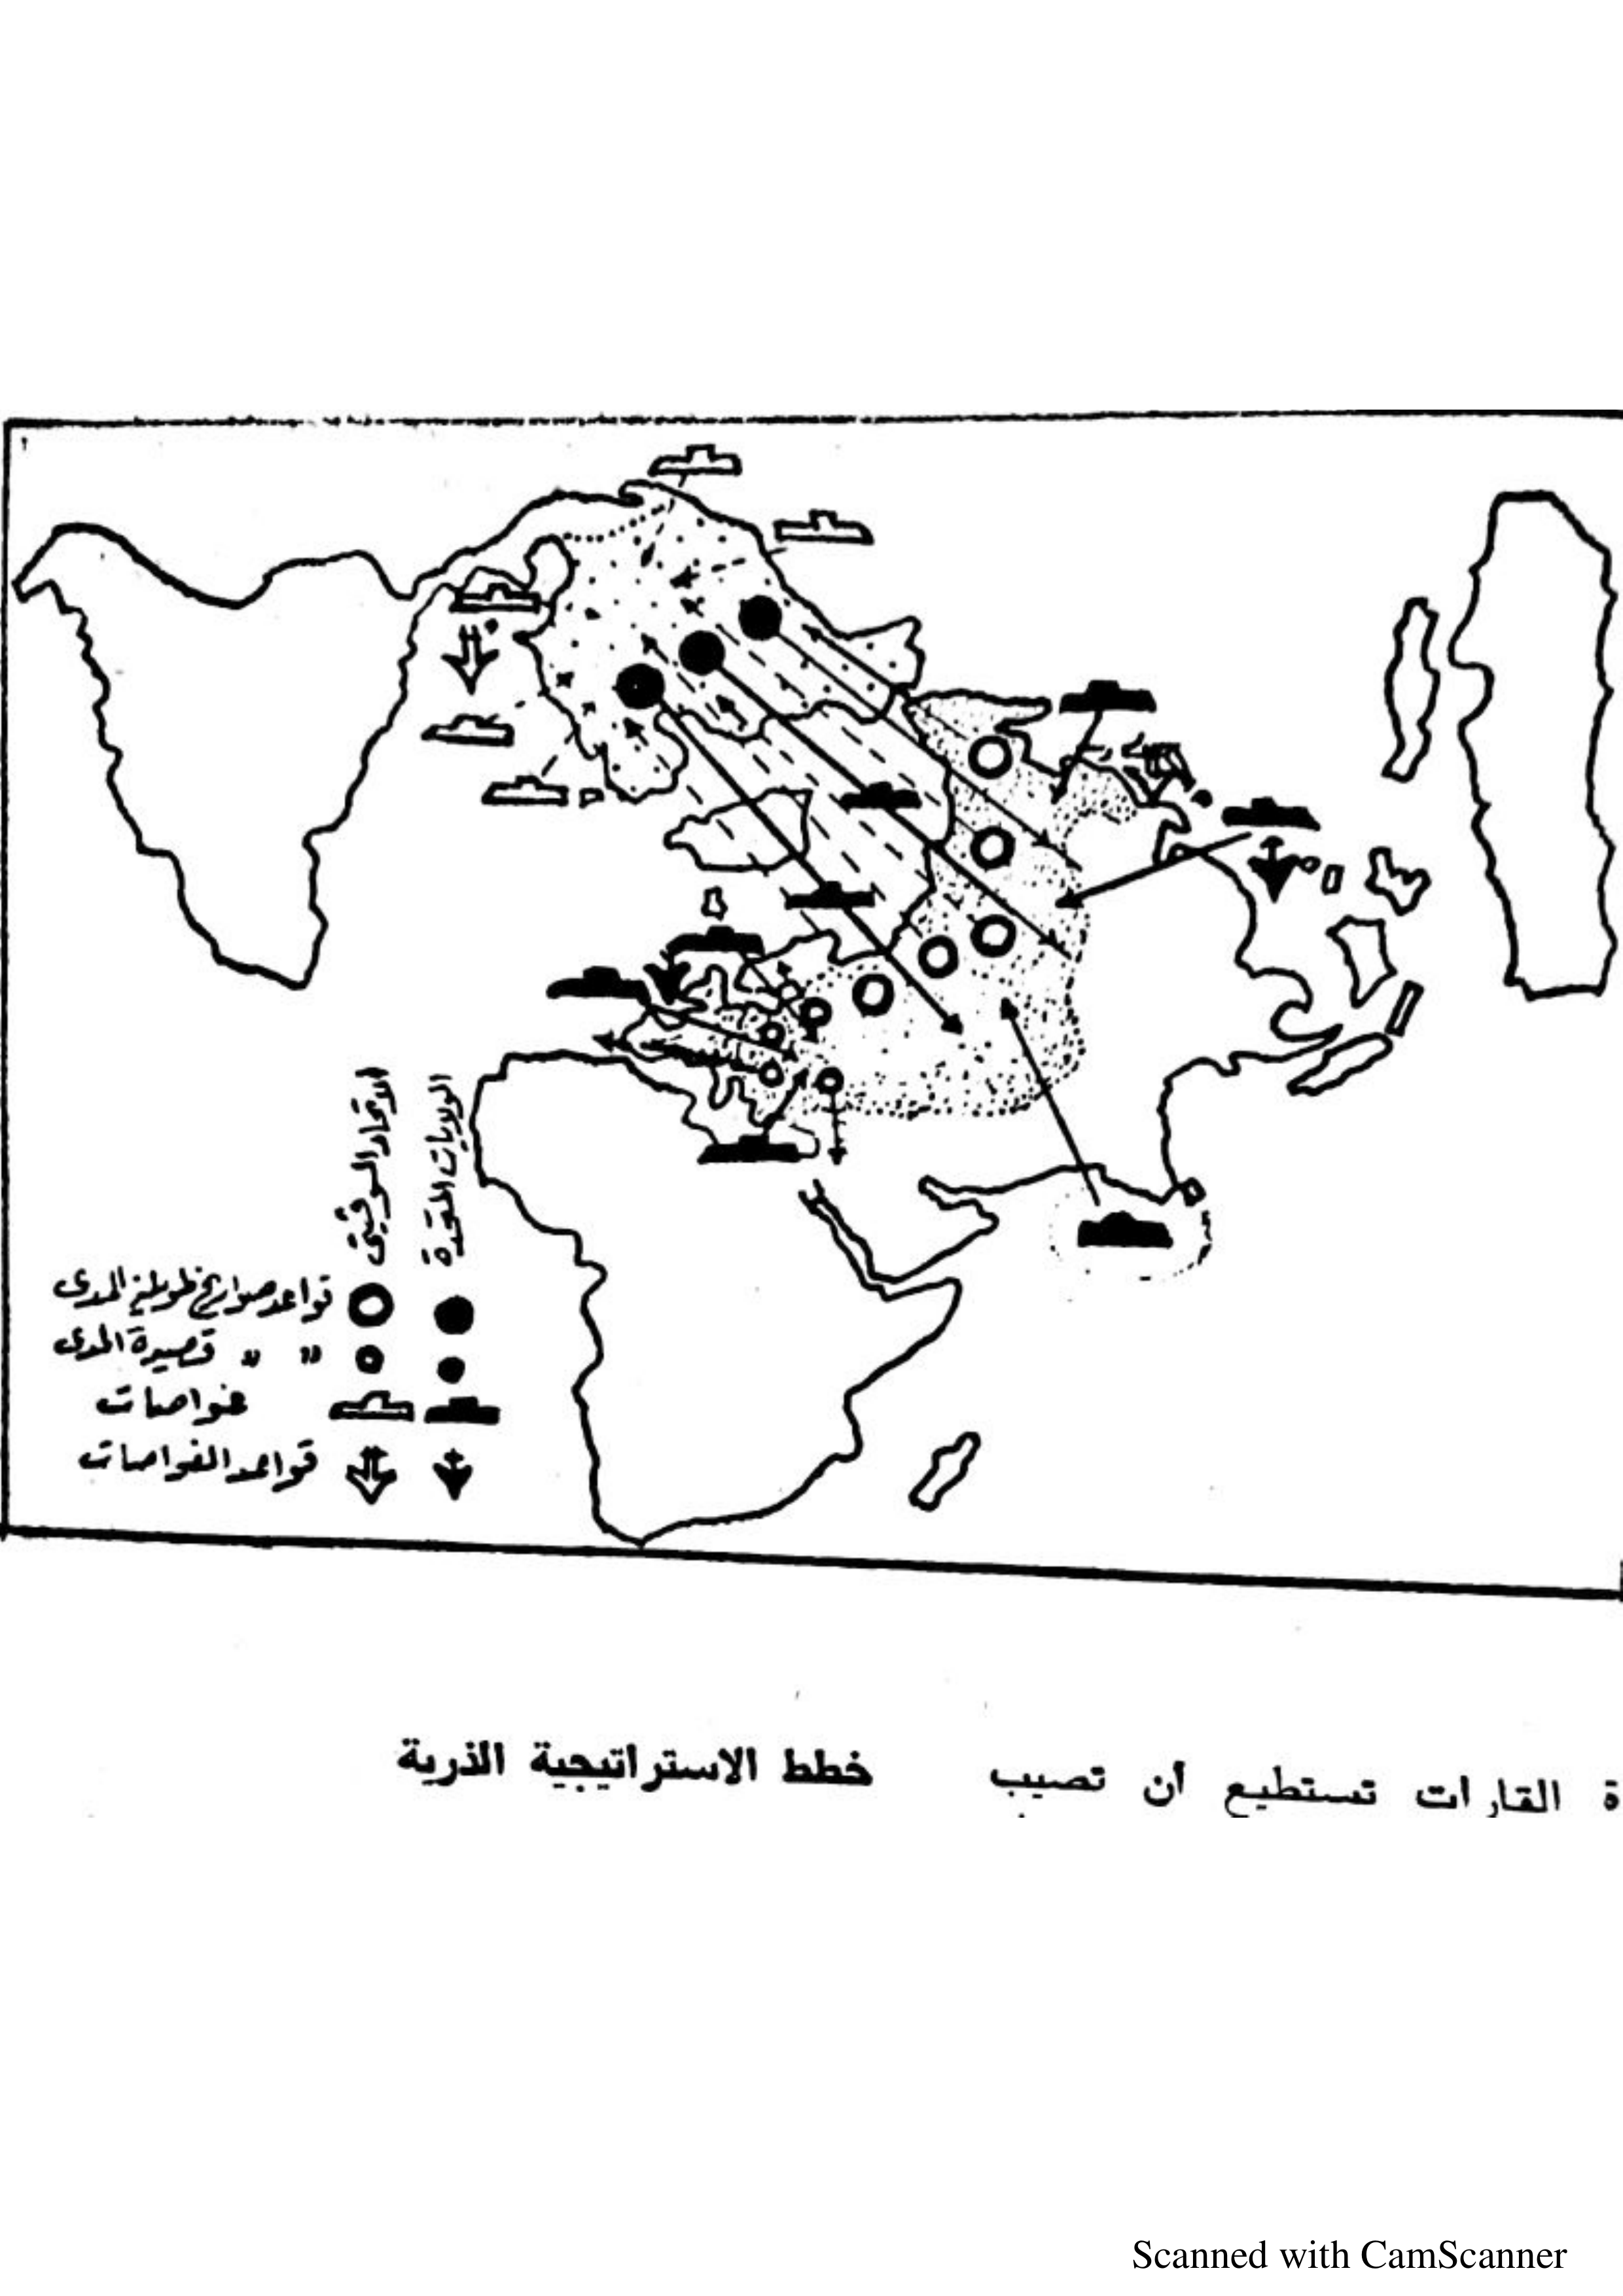 الاتحاد السوفيتى
الولايات المتحدة
قواعد صواريخ طويلة المدى
" " قصيرة المدى
غواصات
قواعد الغواصات
ة القارات تستطيع أن تصيب
خطط الاستراتيجية الذرية
Scanned with CamScanner